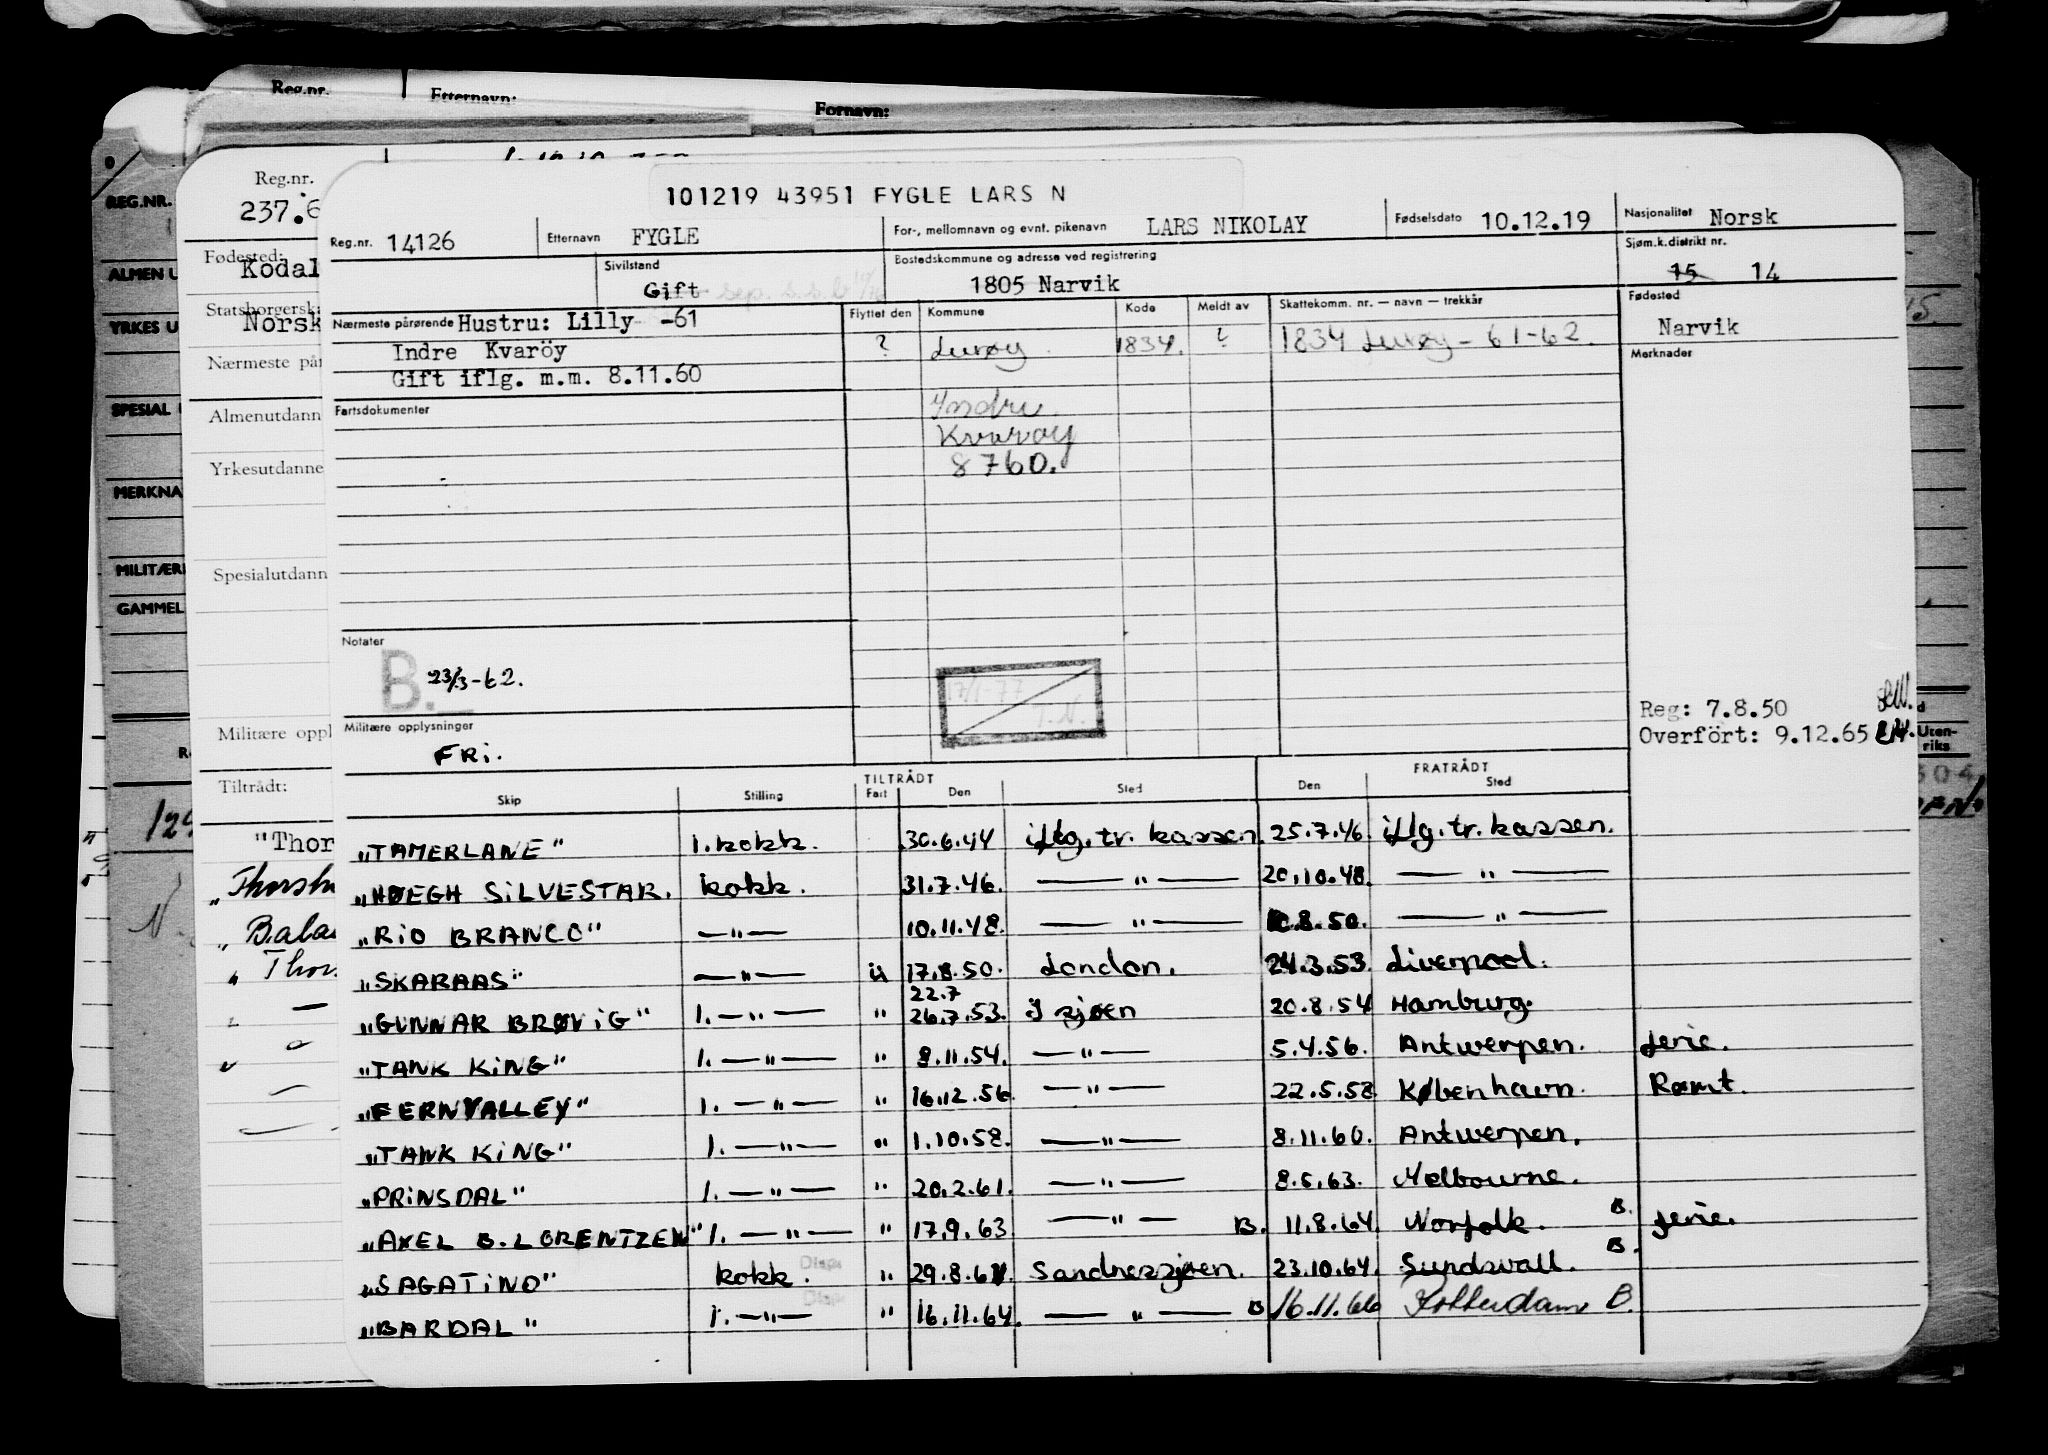 Reg.nr. Etternavn: Fornavn:
REG.NR.
ALMEN U
YRKES U
SPESIAL
MERKNA
MILITÆR
GAMMEL
Reg.nr.
237.6
Fødested:
Kodal
Statsborgersk
Norsk
Nærmeste pår
Almenutdann
Yrkesutdanne
Spesialutdann
Militære oppl
Tiltrådt:
"Thor
101219 43951 FYGLE LARS N
Reg.nr. 14126 Etternavn FYGLE For-, mellomnavn og evnt. pikenavn LARS NIKOLAY Fødselsdato 10.12.19 Nasjonalitet Norsk
Sivilstand Gift sep. Bostedskommune og adresse ved registrering 1805 Narvik Sjøm.k.distrikt nr. 15 14
Nærmeste pårørende Hustru: Lilly -61 Flyttet den Kommune Kode Meldt av Skattekomm. nr. — navn — trekkår Fødested
Indre Kvaröy ? Lurøy 1834. ? 1834 Lurøy - 61-62. Narvik
Gift iflg. m.m. 8.11.60 Merknader
Fartsdokumenter Indre
Kvarøy
8760.
Notater
B. 23/3-62.
17/1-77
T.N.
Militære opplysninger
FRi.
Reg: 7.8.50
Overfört: 9.12.65
Uten-
riks
TILTRÅDT FRATRÅDT
Skip Stilling Fart Den Sted Den Sted
"TAMERLANE" 1. kokk. 30.6.44 iflg. tr. kassen 25.7.46. iflg. tr. kassen.
"HØEGH SiLVESTAR. kokk. 31.7.46. — " — 20.10.48. — " —
"RiO BRANCO" — " — 10.11.48. — " — 10.8.50. — " —
"SKARAAS" — " — U 17.8.50. London. 24.3.53. Liverpool.
22.7
"GUNNAR BRØViG" 1. — " — " 26.7.53. I sjøen 20.8.54 Hamburg.
"TANK KiNG" 1. — " — " 8.11.54. — " — 5.4.56. Antwerpen. ferie.
"FERNVALLEY" 1. — " — " 16.12.56 — " — 22.5.58 København. Rømt.
"TANK KiNG" 1. — " — " 1.10.58. — " — 8.11.60. Antwerpen.
"PRiNSDAL" 1. — " — " 20.2.61. — " — 8.5.63. Melbourne.
"AXEL B. LORENTZEN" 1. — " — " 17.9.63 — " — B. 11.8.64. Norfolk. B. ferie.
"SAGATiND" kokk. Disp. " 29.8.64. Sandnessjøen. 23.10.64. Sundsvall. B.
"BARDAL" 1. — " — Disp. " 16.11.64. — " — B 16.11.66 Rotterdam B.